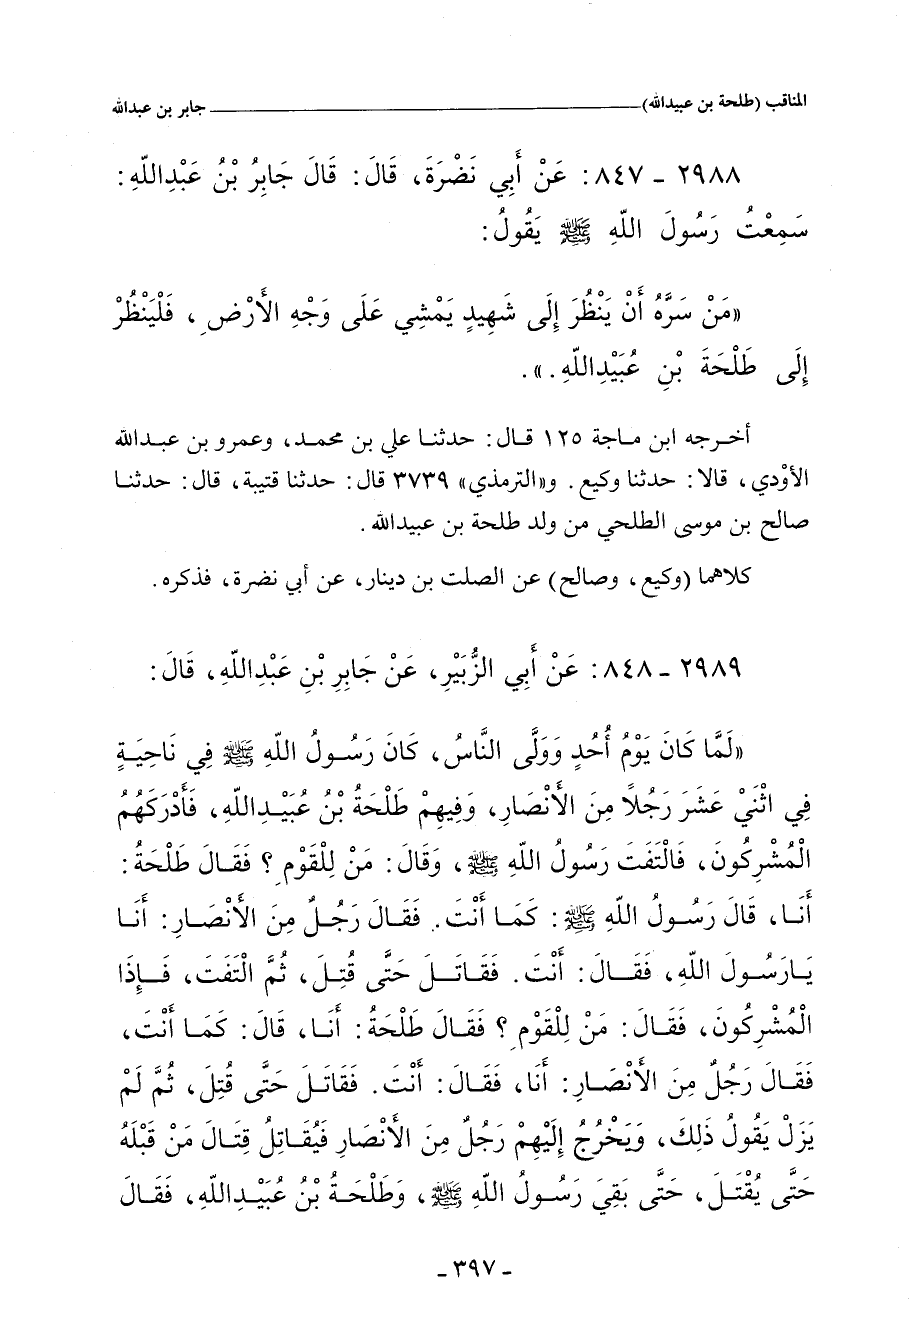 المناقب (طلحة بن عبيدالله) ـــــــــــــــــــــــــ جابر بن عبدالله
٢٩٨٨ - ٨٤٧: عَنْ أَبِي نَضْرَةَ، قَالَ: قَالَ جَابِرُ بْنُ عَبْدِاللّهِ:
سَمِعْتُ رَسُولَ اللّهِ ﷺ يَقُولُ:
«مَنْ سَرَّهُ أَنْ يَنْظُرَ إِلَى شَهِيدٍ يَمْشِي عَلَى وَجْهِ الأَرْضِ، فَلْيَنْظُرْ
إِلَى طَلْحَةَ بْنِ عُبَيْدِاللّهِ.».
أخرجه ابن ماجة ١٢٥ قال: حدثنا علي بن محمد، وعمرو بن عبدالله
الأوْدي، قالا: حدثنا وكيع. و«الترمذي» ٣٧٣٩ قال: حدثنا قتيبة، قال: حدثنا
صالح بن موسى الطلحي من ولد طلحة بن عبيدالله.
كلاهما (وكيع، وصالح) عن الصلت بن دينار، عن أبي نضرة، فذكره.
٢٩٨٩ - ٨٤٨: عَنْ أَبِي الزُّبَيْرِ، عَنْ جَابِرِ بْنِ عَبْدِاللّهِ، قَالَ:
«لَمَّا كَانَ يَوْمُ أُحُدٍ وَوَلَّى النَّاسُ، كَانَ رَسُولُ اللّهِ ﷺ فِي نَاحِيَةٍ
فِي اثْنَيْ عَشَرَ رَجُلاً مِنَ الأَنْصَارِ، وَفِيهِمْ طَلْحَةُ بْنُ عُبَيْدِاللّهِ، فَأَدْرَكَهُمُ
الْمُشْرِكُونَ، فَالْتَفَتَ رَسُولُ اللّهِ ﷺ، وَقَالَ: مَنْ لِلْقَوْمِ؟ فَقَالَ طَلْحَةُ:
أَنَا، قَالَ رَسُولُ اللّهِ ﷺ: كَمَا أَنْتَ. فَقَالَ رَجُلٌ مِنَ الأَنْصَارِ: أَنَا
يَارَسُولَ اللّهِ، فَقَالَ: أَنْتَ. فَقَاتَلَ حَتَّى قُتِلَ، ثُمَّ الْتَفَتَ، فَإِذَا
الْمُشْرِكُونَ، فَقَالَ: مَنْ لِلْقَوْمِ؟ فَقَالَ طَلْحَةُ: أَنَا، قَالَ: كَمَا أَنْتَ،
فَقَالَ رَجُلٌ مِنَ الأَنْصَارِ: أَنَا، فَقَالَ: أَنْتَ. فَقَاتَلَ حَتَّى قُتِلَ، ثُمَّ لَمْ
يَزَلْ يَقُولُ ذَلِكَ، وَيَخْرُجُ إِلَيْهِمْ رَجُلٌ مِنَ الأَنْصَارِ فَيُقَاتِلُ قِتَالَ مَنْ قَبْلَهُ
حَتَّى يُقْتَلَ، حَتَّى بَقِيَ رَسُولُ اللّهِ ﷺ، وَطَلْحَةُ بْنُ عُبَيْدِاللّهِ، فَقَالَ
- ٣٩٧ -